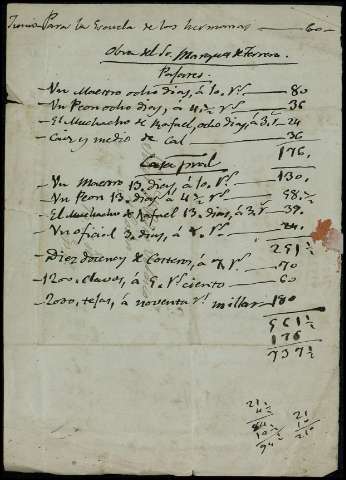 Para la Escuela de los hermanas — 60 —
Obra del Sr. Marques de Herrera.
Pajares.
— Un Maestro ocho dias, á 10. rs. — 80
— Un Peon ocho dias, á 4½ rs. — 36
— El Muchacho de Rafael, ocho dias, á 3. rs — 24
— Caiz y medio de Cal — 36
176.
Casa pral
— Un Maestro 13. dias, á 10. rs. — 130.
— Un Peon 13. dias á 4½ rs. — 58½
— El Muchacho de Rafael 13. dias, á 3. rs — 39.
— Un oficial 3. dias, á 8. rs. — 24.
251½
— Diez docenas de Costeros, á 7. rs. — 70
— 1200. Clavos, á 5. rs. ciento — 60
— 2000. tejas, á noventa rs. millar — 180
561½
176
737½
21
4½
84
10½
94½
21
10
210